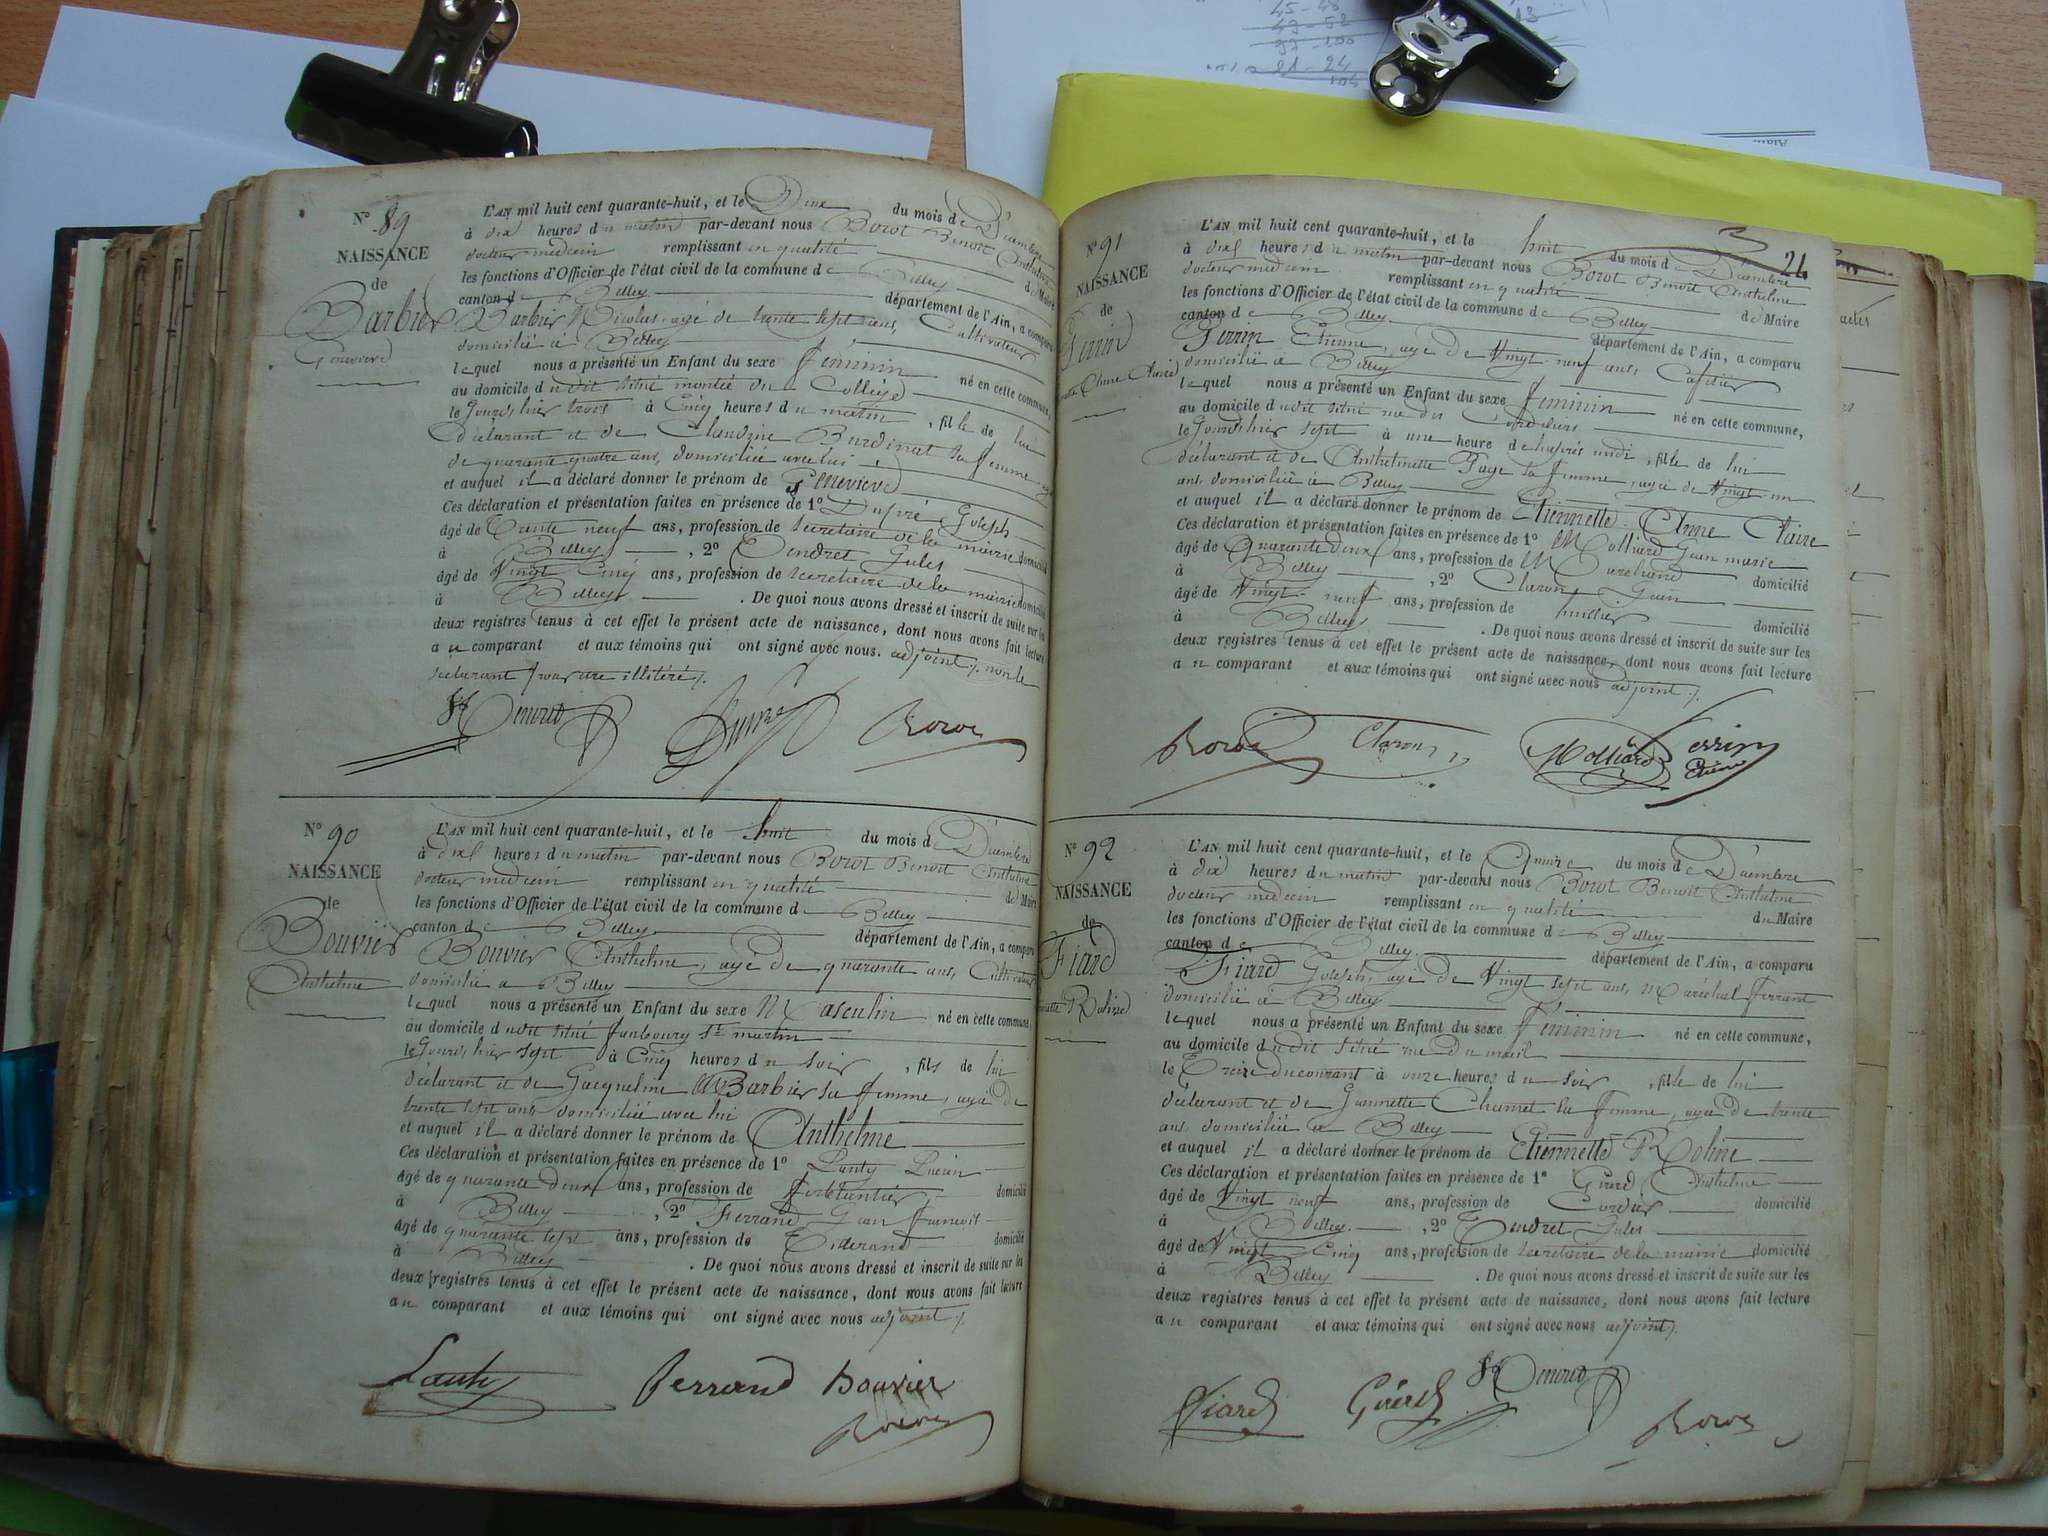 45 - 48
49 - 52
97 - 100
21 - 24
104
13
N° 89
NAISSANCE
de
Barbier
Genevieve
L'AN mil huit cent quarante-huit, et le Deux du mois de Décembre
à dix heures du matin par-devant nous Borot Benoit Anthelme
docteur medecin remplissant en qualité de Maire
les fonctions d'Officier de l'état civil de la commune de Belley
canton de Belley département de l'Ain, a comparu
Barbier Nicolas, age de trente sept ans, Cultivateur
domicilié à Belley
lequel nous a présenté un Enfant du sexe féminin né en cette commune,
au domicile dudit situé montée du Collége
le jourd'hier trois à Cinq heures du matin, fille de lui
déclarant et de Claudine Burdinat sa femme, agé
de quarante quatre ans, domiciliée avec lui
et auquel il a déclaré donner le prénom de Genevieve
Ces déclaration et présentation faites en présence de 1° Dupré Joseph
âgé de Trente neuf ans, profession de secretaire de la mairie domicilié
à Belley, 2° Tendret Jules
âgé de Vingt Cinq ans, profession de secretaire de la mairie domicilié
à Belley. De quoi nous avons dressé et inscrit de suite sur les
deux registres tenus à cet effet le présent acte de naissance, dont nous avons fait lecture
au comparant et aux témoins qui ont signé avec nous. adjoint /. non le
déclarant pour être illitéré /.
Js Tendret Dupré Borot
N° 90
NAISSANCE
de
Bouvier
Anthelme
L'AN mil huit cent quarante-huit, et le huit du mois de Décembre
à dix heures du matin par-devant nous Borot Benoit Anthelme
docteur medecin remplissant en qualité de Maire
les fonctions d'Officier de l'état civil de la commune de Belley
canton de Belley département de l'Ain, a comparu
Bouvier Anthelme, agé de quarante ans, Cultivateur
domicilié à Belley
lequel nous a présenté un Enfant du sexe Masculin né en cette commune,
au domicile dudit situé faubourg St martin
le jourd'hier sept à Cinq heures du soir, fils de lui
déclarant et de Jacqueline Barbier sa femme, agée de
trente sept ans domiciliée avec lui
et auquel il a déclaré donner le prénom de Anthelme
Ces déclaration et présentation faites en présence de 1° Lanty Lucien
âgé de quarante deux ans, profession de ferblantier domicilié
à Belley, 2° Ferrand Jean francois
âgé de quarante sept ans, profession de Tisserand domicilié
à Belley. De quoi nous avons dressé et inscrit de suite sur les
deux registres tenus à cet effet le présent acte de naissance, dont nous avons fait lecture
au comparant et aux témoins qui ont signé avec nous adjoint /.
Lanty Ferrand Bouvier
Borot
24
N° 91
NAISSANCE
de
Perrin
Anne Claire
L'AN mil huit cent quarante-huit, et le huit du mois de Décembre
à dix heures du matin par-devant nous Borot Benoit Anthelme
docteur medecin remplissant en qualité de Maire
les fonctions d'Officier de l'état civil de la commune de Belley
canton de Belley département de l'Ain, a comparu
Perrin Etienne, agé de Vingt neuf ans, Cafetier
domicilié à Belley
lequel nous a présenté un Enfant du sexe féminin né en cette commune,
au domicile dudit situé rue des Cordeliers
le jourd'hier sept à une heure de l'après midi, fille de lui
déclarant et de Anthelmette Page sa femme, agée de Vingt un
ans, domiciliée à Belley
et auquel il a déclaré donner le prénom de Etiennette Anne Claire
Ces déclaration et présentation faites en présence de 1° Molliard Jean marie
âgé de Quarante deux ans, profession de Marchand domicilié
à Belley, 2° Claron Jean
âgé de Vingt neuf ans, profession de huissier domicilié
à Belley. De quoi nous avons dressé et inscrit de suite sur les
deux registres tenus à cet effet le présent acte de naissance, dont nous avons fait lecture
au comparant et aux témoins qui ont signé avec nous adjoint /.
Borot Claron Molliard Perrin
Etienne
N° 92
NAISSANCE
de
Fiard
Roline
L'AN mil huit cent quarante-huit, et le Quinze du mois de Décembre
à dix heures du matin par-devant nous Borot Benoit Anthelme
docteur medecin remplissant en qualité du Maire
les fonctions d'Officier de l'état civil de la commune de Belley
canton de Belley département de l'Ain, a comparu
Fiard Joseph, agé de Vingt sept ans, Maréchal ferrant
domicilié à Belley
lequel nous a présenté un Enfant du sexe féminin né en cette commune,
au domicile dudit situé rue du mail
le Treize du courant à onze heures du soir, fille de lui
déclarant et de Jeannette Chamet sa femme, agée de trente
ans, domiciliée à Belley
et auquel il a déclaré donner le prénom de Etiennette Roline
Ces déclaration et présentation faites en présence de 1° Girerd Anthelme
âgé de Vingt neuf ans, profession de Cordier domicilié
à Belley, 2° Tendret Jules
âgé de Vingt Cinq ans, profession de secretaire de la mairie domicilié
à Belley. De quoi nous avons dressé et inscrit de suite sur les
deux registres tenus à cet effet le présent acte de naissance, dont nous avons fait lecture
au comparant et aux témoins qui ont signé avec nous adjoint /.
Fiard Girerd Js Tendret Borot